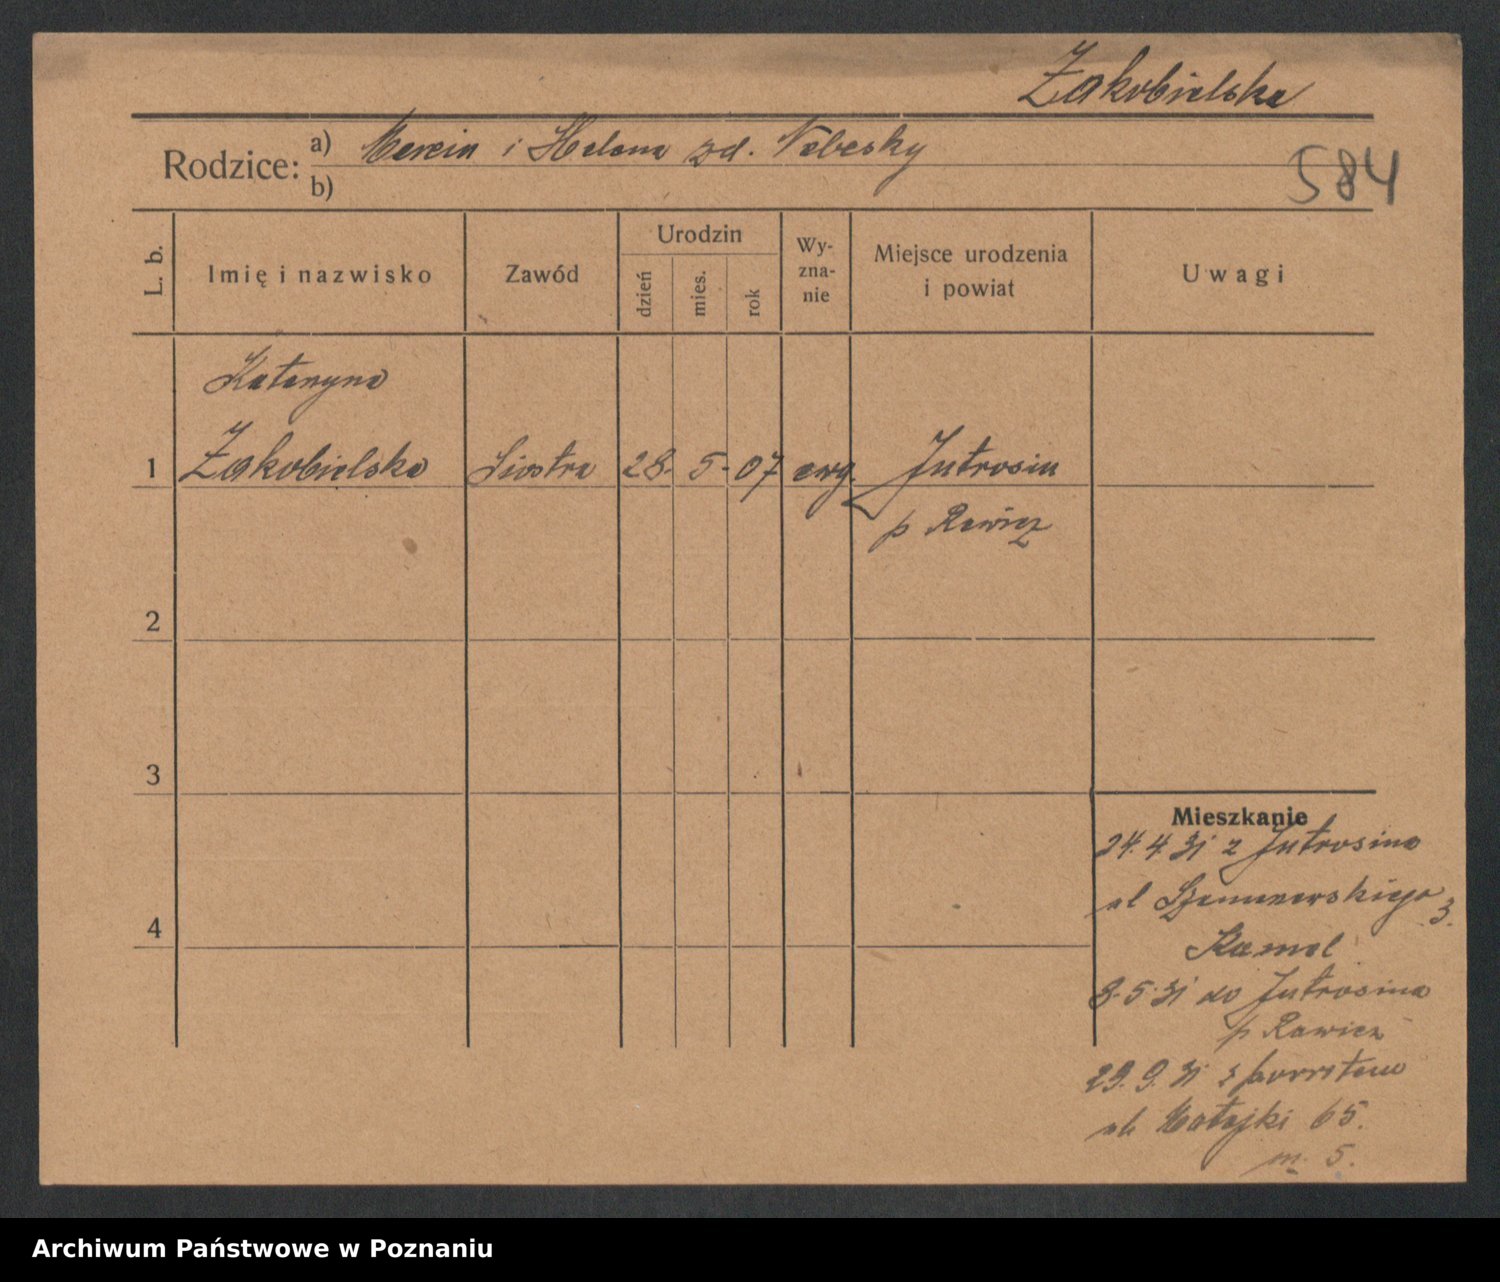 Zakobielska
Rodzice:
a) Marcin i Helena zd. Nebesky
b)
584
L. b.
Imię i nazwisko
Zawód
Urodzin
dzień
mies.
rok
Wy-
zna-
nie
Miejsce urodzenia
i powiat
Uwagi
Katarzyna
1 Zakobielska Siostra 28. 5. 07 ewg. Jutrosin
p Rawicz
2
3
4
Mieszkanie
24. 4. 31 z Jutrosina
ul 3.
8. 5. 31 do Jutrosina
p Rawicz
29. 9. 31 z powrotem
ul. Matejki 65.
m. 5.